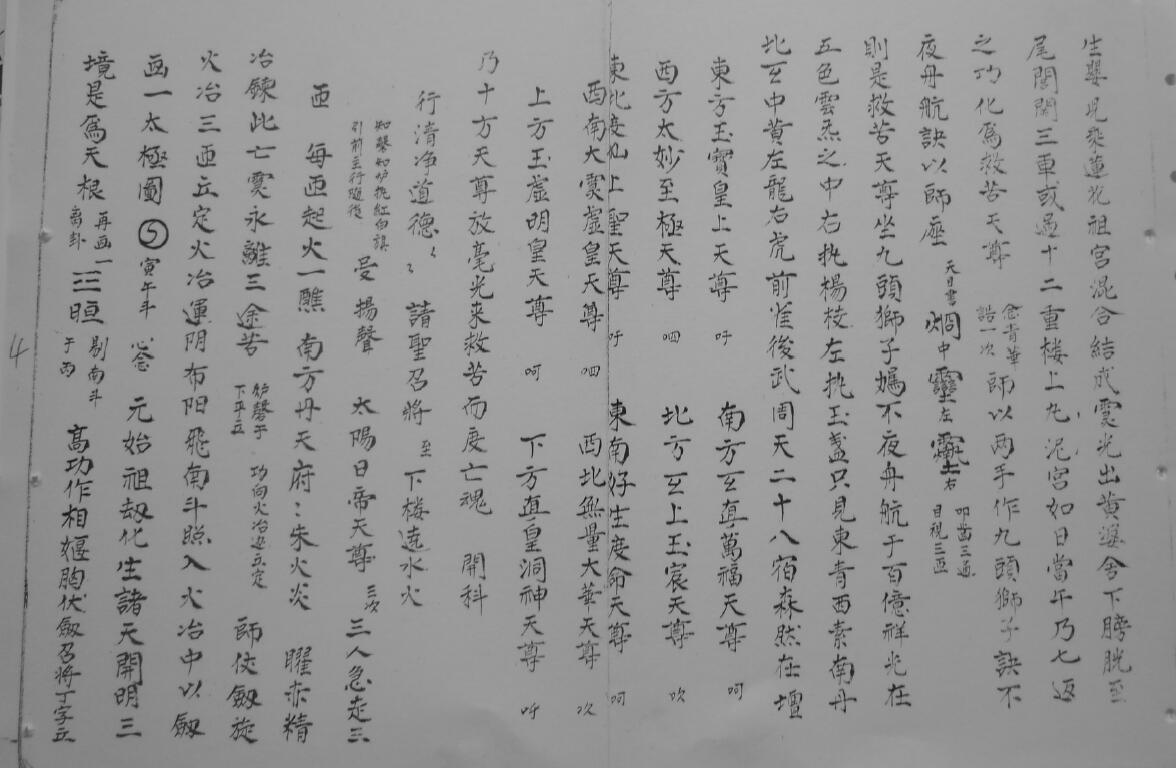 生嬰児乘蓮花祖宮混合結成霛光出黄婆舍下膀胱至
尾閭関三車或過十二重楼上九泥宮如日當午乃七返
之功化爲救苦天尊 念青華誥一次 師以两手作九頭獅子訣不
夜舟航訣以師座 天目書 炯中 靈左 右 叩齒三通 目視三匝
則是救苦天尊坐九頭獅子馮不夜舟航于百億祥光在
五色雲炁之中右执楊枝左执玉盞只見東青西素南丹
北玄中黄左龍右虎前雀後武周天二十八宿森然在壇
東方玉寳皇上天尊 吁 南方玄真萬福天尊 呵
西方太妙至極天尊 呬 北方玄上玉宸天尊 吹
東北度仙上聖天尊 吁 東南好生度命天尊 呵
西南太霛虛皇天尊 呬 西北無量大華天尊 次
上方玉虛明皇天尊 呵 下方真皇洞神天尊 吁
乃十方天尊放毫光来救苦而度亡魂 開科
行清净道德〻〻 請聖召將 至 下楼遶水火
知磬知炉执紅白旗引前主行随後 旻 揚聲 太陽日帝天尊 三次 三人急走三
匝 每匝起火一醮 南方丹天府〻朱火炎 曜赤精
冶鍊此亡霛永離三途苦 炉磬于下平立 功向火冶边立定 師仗劔旋
火冶三匝立定火冶運阴布阳飛南斗照入火冶中以劔
画一太極圖 寅午斗 元始祖刼化生諸天開明三
境是爲天根 再画一离卦 三 晅 剔南斗于丙 高功作相媪胸伏劔召将丁字立
4